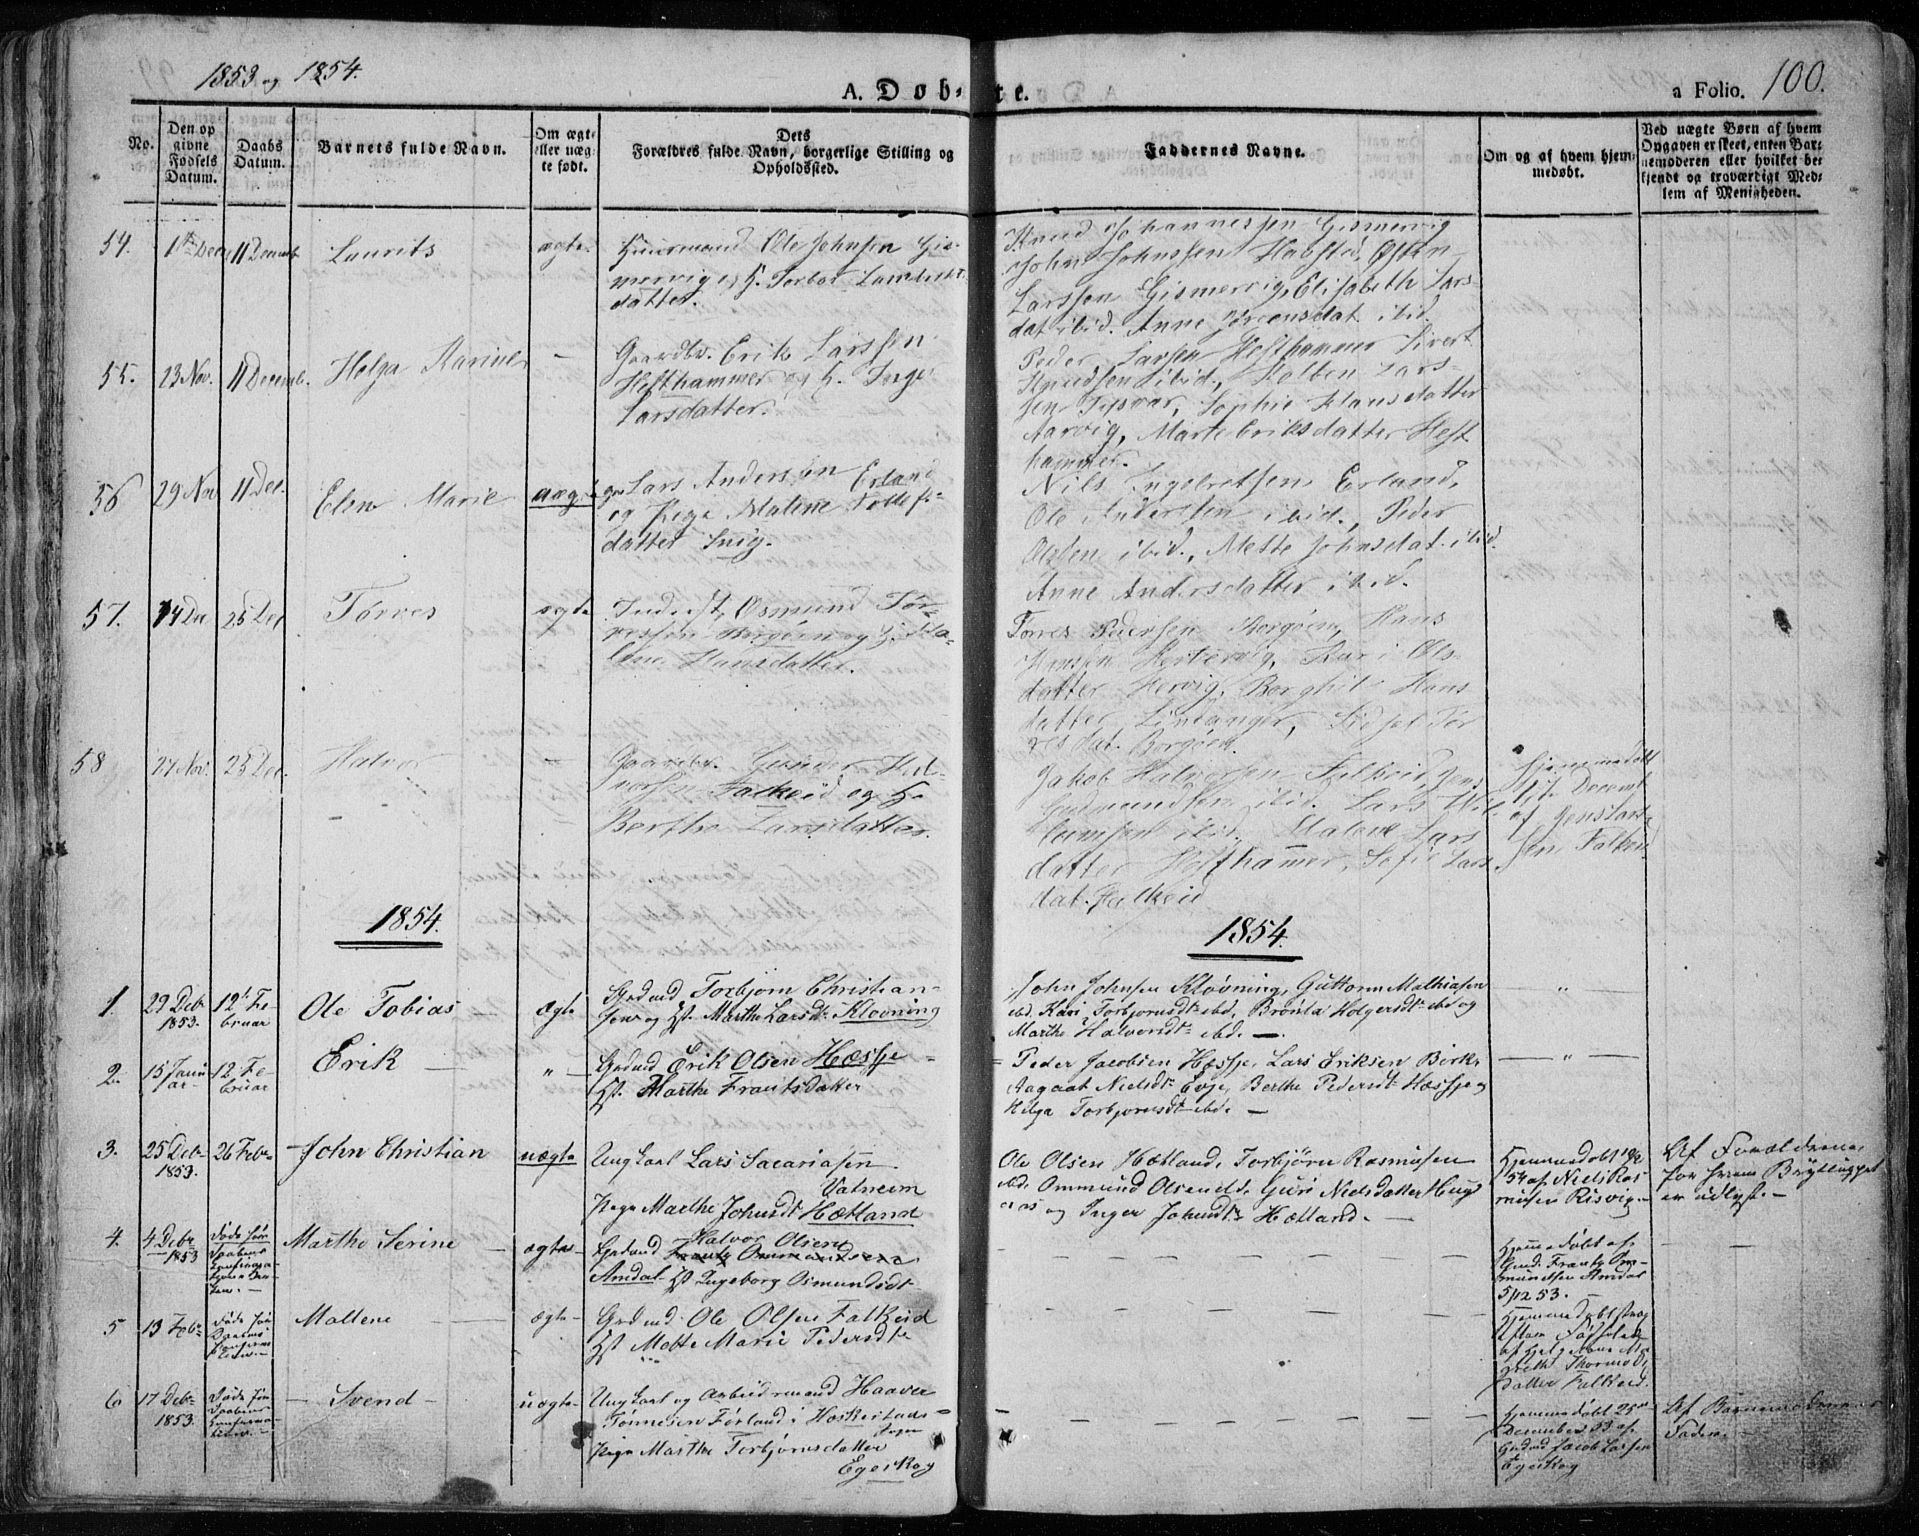 1853 og 1854.
A. Døbte.
a Folio. 100.
No.
Den op
givne
Fødsels
Datum.
Daabs
Datum.
Barnets fulde Navn.
Om ægte
eller uæg-
te født.
Dets
Forældres fulde Navn, borgerlige Stilling og
Opholdssted.
Faddernes Navne.
Om og af hvem hjem-
medøbt.
Ved uægte Børn af hvem
Opgaven er skeet, enten Bar-
nemoderen eller hvilket be-
kjendt og troværdigt Med-
lem af Menigheden.
54. 11 Decemb Laurits ægte
Huusmand Ole Johnsen Gis-
mervig og H. Torbor Lambrikt
datter.
Knud Johannessen Gismervig
John Johnssen Habsted, Østen
Larssen Gismervig, Elisabeth Lars
dat ibid. Anne Joreensdat ibid
55. 23 Nov. 11 Decemb. Helga Karine –
Gaardbr. Erik Larssen
Hefthammer og H. Inger
Larsdatter.
Peder Larsen Hefthammer Sivert
Knudsen ibid, Kolben Lars-
sen Tysvær, Sophie Klausdatter
Aarvig, Marte Eriksdatter Heft
hammer.
56 29 Nov 11 Dec. Elen Marie uægte
Lars Anderssen Erland
og Pige Malene Tollefs-
datter Snig.
Nils Ingebretsen Erland,
Ole Anderssen ibid., Peder
Olssen ibid., Mette Johnsdat. ibid.
Anne Andersdatter ibid.
57. 14 Dec 25 Dec Tørres ægte
Inderst, Osmund Tør-
ressen Borgøen og H. Ma-
lene Hansdatter.
Tørres Pedersen Borgøen, Hans
Hanssen Hertervig, Kari Ols-
datter Hervig, Borghil Hans
datter Lindanger, Sidsel Tør
resdat. Borgøen.
58 27 Nov. 25 Dec. Halvor –
Gaardbr. Gunder Hal-
vorsen Falkeid og H.
Berthe Larsdatter.
Jakob Halvorsen Falkeid, Jens
Gudmundsen ibid. Lars Wil-
lumsen ibid. Malene Lars
datter Hefthammer, Sofie Lars-
dat. Falkeid
Hjemmedøbt
Decemb
af Jens Lars-
sen Falkeid
1854.
1854.
1. 29 Deb
1853.
12te Fe-
bruar
Ole Tobias Ægte
Grdmd Torbjørn Christian-
sen og Hst. Marthe Larsdt. Kløvning
John Johnsen Kløvning, Guttorm Mathiasen
ibd. Kari Torbjørnsdt. ibd, Brønla Holgersdt. ibd og
Marthe Halvorsdt. ibd. —
— " —
2. 15 Janu
ar
12 Fe-
bruar
Erik — " —
Grdmd Erik Olsen Hæsfje –
Hst. Marthe Frantsdatter
Peder Jacobsen Hæsfje, Lars Eriksen Birk,
Aagaat Nielsdt. Evje, Berthe Pedersdt. Hæsfje og
Helga Torbjørnsdt. ibd. —
— " —
3. 25 Deb
1853.
26 Febr
John Christian uægte
Ungkarl Lars Sacariasen
Vatneim
Pige Marthe Johnsdt. Hætland
Ole Olsen Hætland, Torbjørn Rasmusen
ibd. Ommund Olsen ibd, Guri Nielsdatter Hug
aas og Inger Johnsdt. Hætland. —
Hjemmedøbt
54 af Niels Ras
musen Risvig. —
Af Forældrene,
for hvem Brylluppet
er udlyst. —
4. 4 Debr
1853
Døde før
Daabens
Confirma-
tion
Marthe Serine – ægte –
Halvor Olsen
Grdmd Frantz Ommundsen
Amdal Hst Ingeborg Osmundsdt.
Hjemmedøbt af
Gmd. Frantz Om-
mundsen Amdal
5/12 53.
5 13 Febr
Døde før
Daabens
Confirma
tion. —
Maltene ægte –
Grdmd Ole Olsen Falkeid
Hst Mette Marie Pedersdt.
Hjemmedøbt strax
efter Fødselen
af Anne Ma
grethe Thormods
datter Falkeid.
6 17 Deb
1853.
Døde før
Daabens
Confirma-
tion. —
– Svend – uægte –
Ungkarl og Arbeidsmand Haaver
Tønnesen Førland i Haskestads
Sogn
Pige Marthe Torbjørnsdatter
Egeskog
Hjemmedøbt 25de
December 53 af
Grdmd Jacob Larsen
Egeskog
Af Barnemoderens
Fader. –